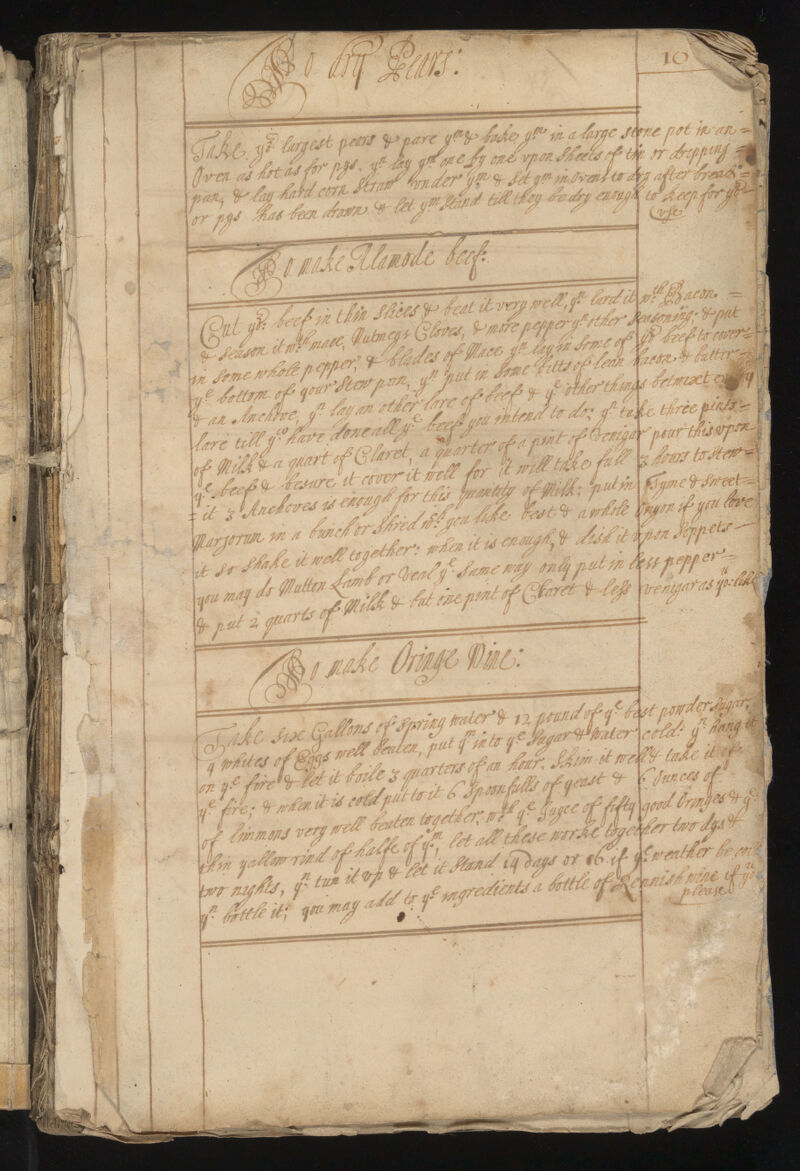 10
To dry Pears:
Take yᵉ largest pears & pare yᵐ & bake yᵐ in a large stone pot in an =
Oven as hot as for pys, yⁿ lay yᵐ one by one vpon sheets of tin or dripping =
pan, & lay hard corn Straw vnder yᵐ & set yᵐ in ovens to dry after bread =
or pys has been drawn & let yᵐ stand till they be dry enough to keep for yʳ
vse
To make Alamode beef:
Cut yʳ: beef in thin slices & beat it very well, yⁿ lard it wᵗʰ Bacon =
& season it wᵗʰ mace, Nutmegs Cloves, & more pepper yⁿ other seasening: & put
in some whole pepper, & blades of Mace yⁿ lay in some of yʳ beef to cover =
yᵉ bottom of your Stew pan, yⁿ put in some bitts of lean bacon & butter =
& an Anchove, yⁿ lay an other lare of beef & yᵉ other things betwixt every
lare till yᵒᵘ have done all yᵉ beef you intend to do; yⁿ take three pints =
of Milk & a quart of Claret, a quarter of a pint of Venigar pour this vpon
yᵉ beef & besure it cover it well for it will take full 3 hours to stew =
= it 3 Anchoves is enough for this quantity of Milk: put in Tyme & sweet =
Marjorum in a bunch or shred wᶜʰ you like best & a whole Onyon if you love
it so shake it well together: when it is enough, & dish it vpon sippets
you may do Mutton Lamb or Veal yᵉ same way only put in less pepper =
& put 2 quarts of Milk & but one pint of Claret & less venigar as yᵒᵘ: like
To make Oringe Wine:
Take six Gallons of spring water & 12 pound of yᵉ best powder sugar,
4 whites of Eggs well beaten, put yᵐ into yᵉ sugar & Water cold: yⁿ hang it
on yᵉ fire & let it boile 3 quarters of an hour. skim it well & take it of
yᵉ fire; & when it is cold put to it 6 spoonfulls of yeast & 6 Ounces of
of limmons very well beaten together, wᵗʰ yᵉ Juyce of fifty good Oringes & yᵉ:
thin yallow rind of halfe of yᵐ, let all these worke together two dys &
two nights, yⁿ tun it vp & let it stand 14 days or 16 if yᵉ weather be cold
yⁿ bottle it; you may add to yᵉ ingredients a bottle of Rennish wine if yᵒᵘ
please